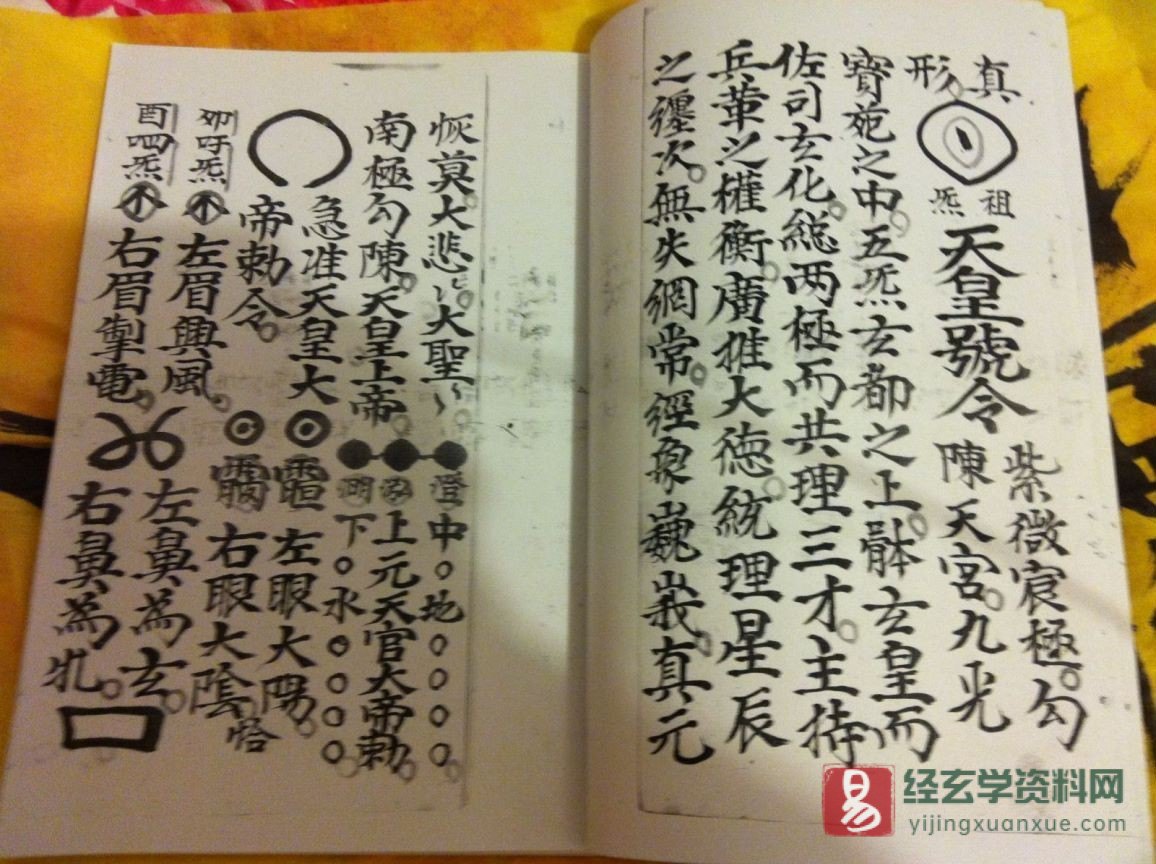 真形
祖炁
天皇號令
紫微宸極勾
陳天宮九光
寶苑之中五炁玄都之上骵玄皇而
佐司玄化總两極而共理三才主持
兵革之權衡廣推大德統理星辰
之纏次無失網常經象巍峩真元
恢莫大悲〻大聖〻
南極勾陳天皇上帝
急准天皇大
帝勅令
澄
中○地○○○○
上元天官大帝勅
下○水○○○○
左眼大陽
右眼大陰
左眉興風
酉 炁
右眉掣電
左鼻為玄
右鼻為牝
易
经玄学资料网
yijingxuanxue.com